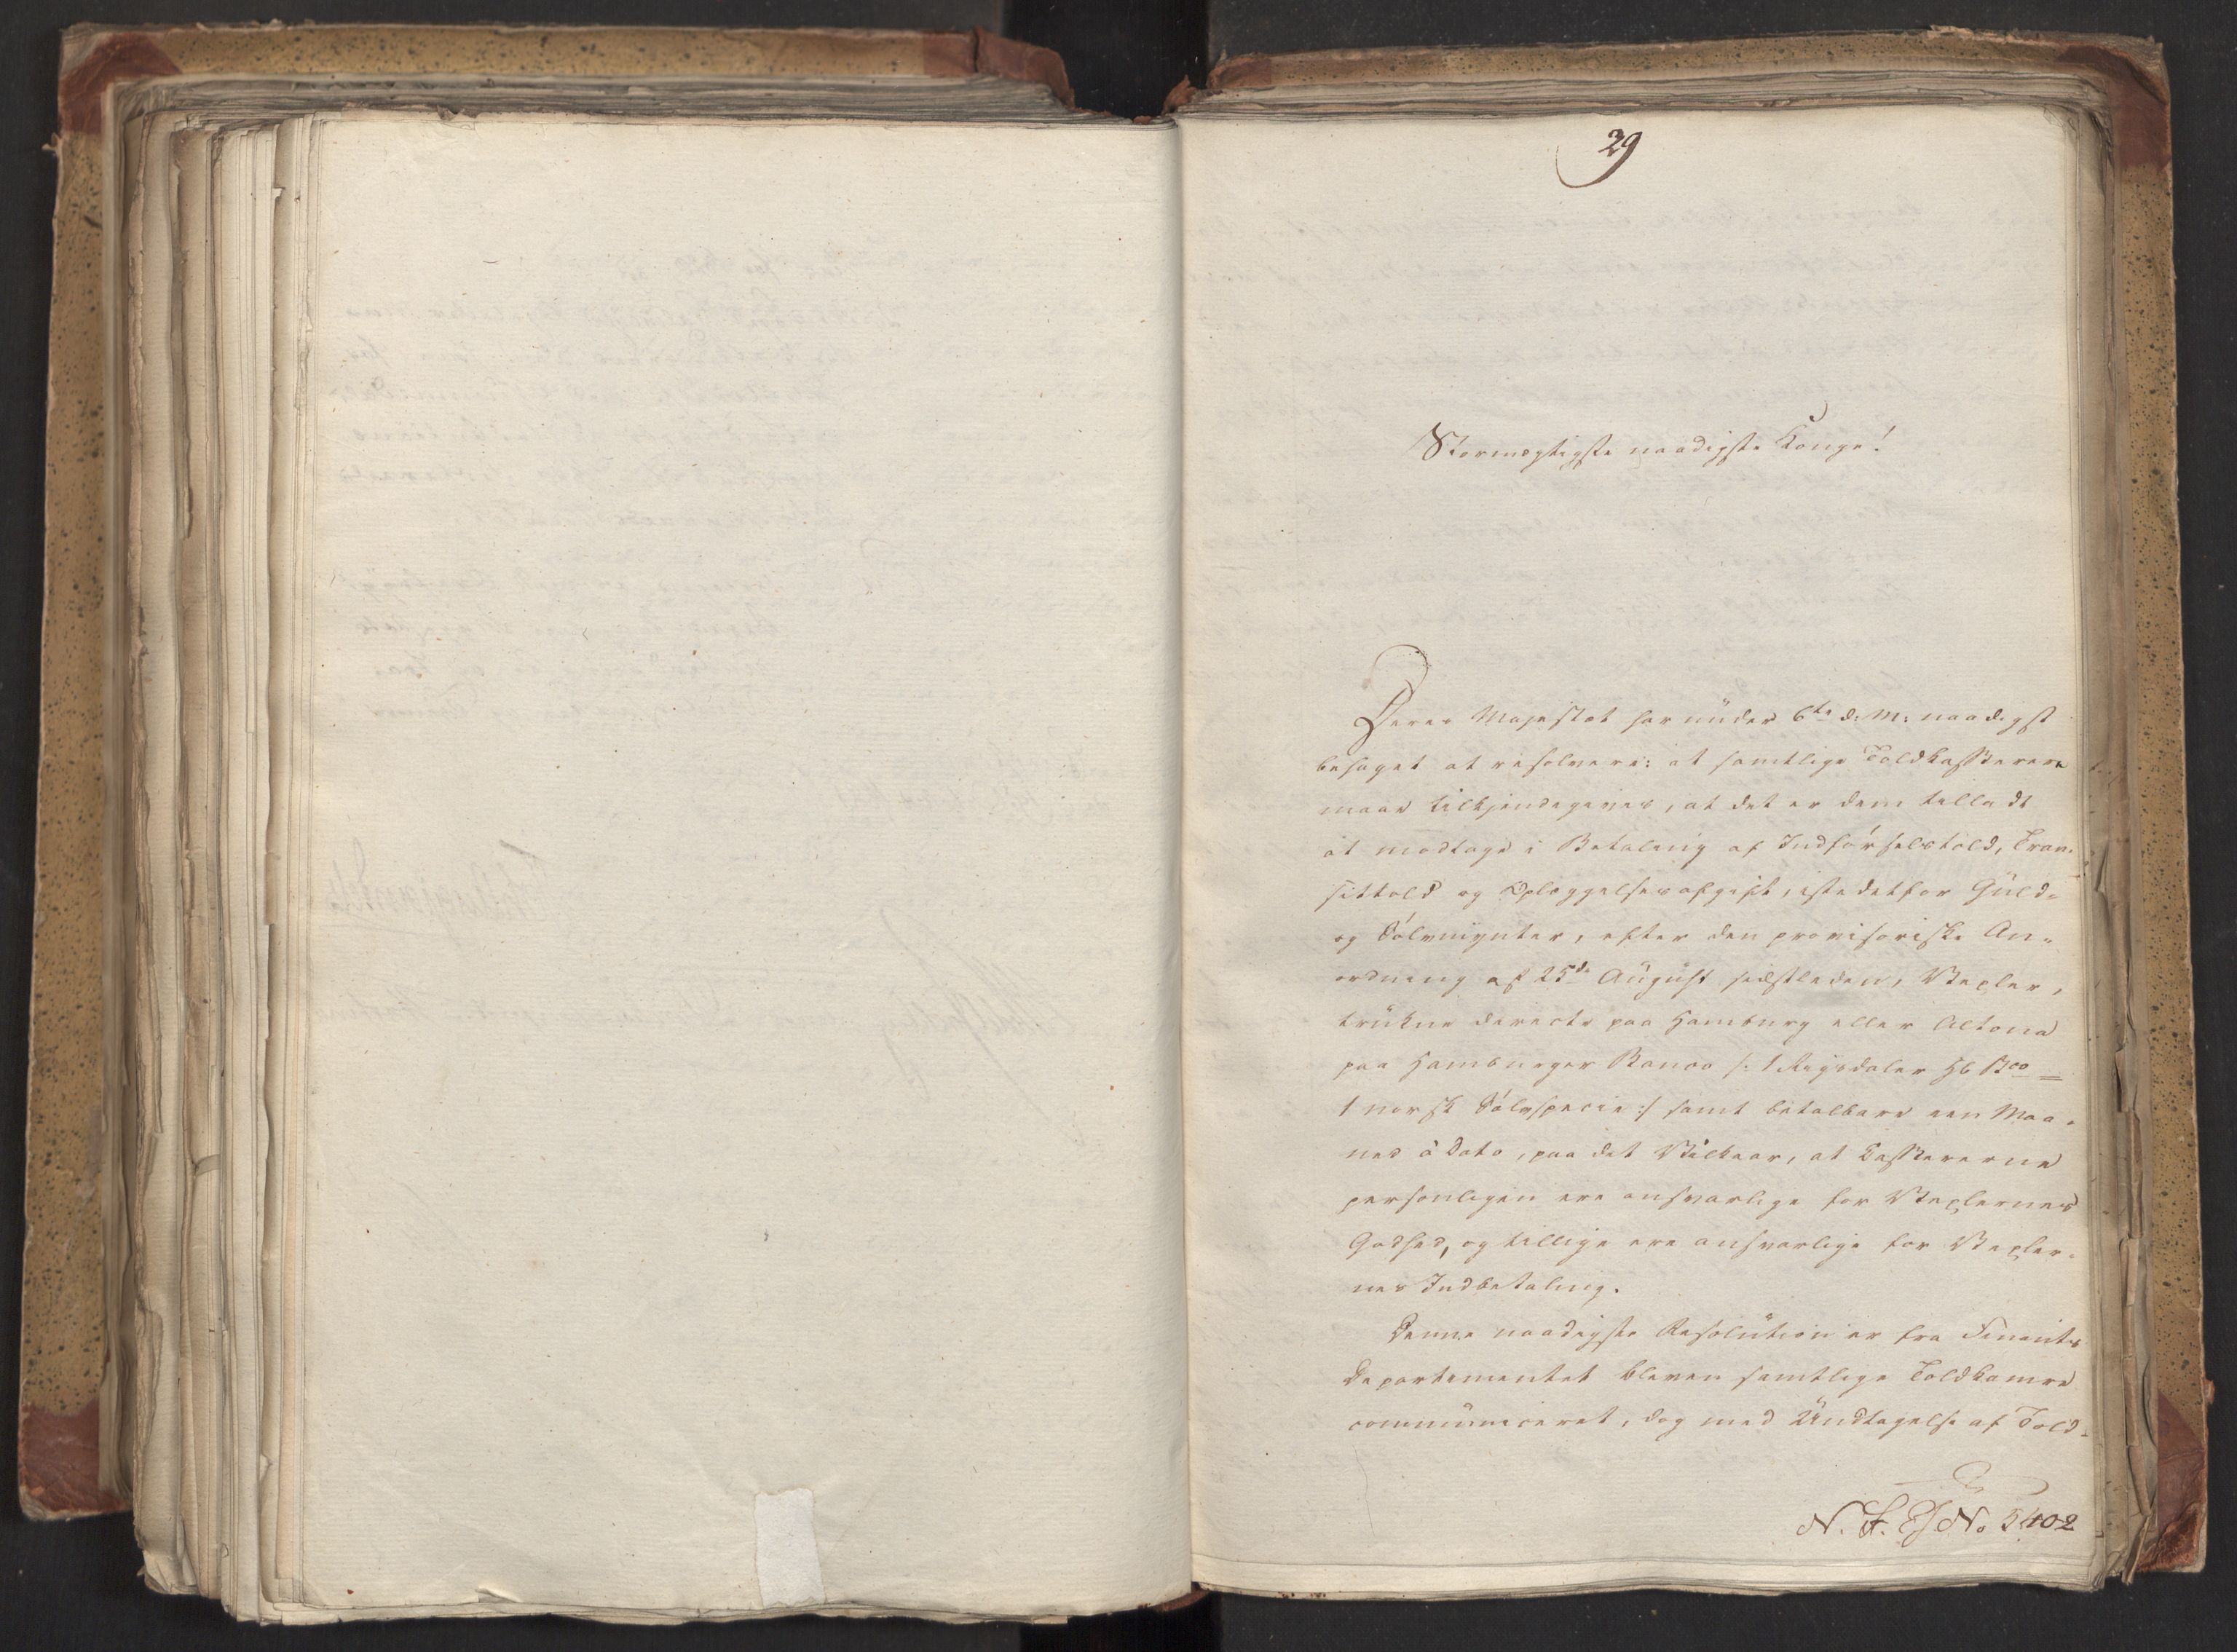 29
Stormægtigste naadigste Konge!
Deres Majestæt har under 6te d: M: naadigst
behaget at resolvere: at samtlige Toldkasserere
maae tilkjendegives, at det er dem tilladt
at modtage i Betaling af Indførselstold, Tran-
sittold og Oplæggelsesafgift, istedetfor Guld-
og Sølvmynter, efter den provisoriske An-
ordning af 25de August sidstleden, Vexler,
trukne directe paa Hamburg eller Altona
paa Hamburger Banco /: 1 Rigsdaler Hb Bco =
1 norsk Sølvspecie :/ samt betalbare een Maa-
ned à Dato, paa det Vilkaar, at Kassererne
personligen ere ansvarlige for Vexlernes
Godhed, og tillige ere ansvarlige for Vexler-
nes Indbetaling.
Denne naadigste Resolution er fra Finants
Departementet bleven samtlige Toldkamre
communiceret, dog med Undtagelse af Told-
No. 5402